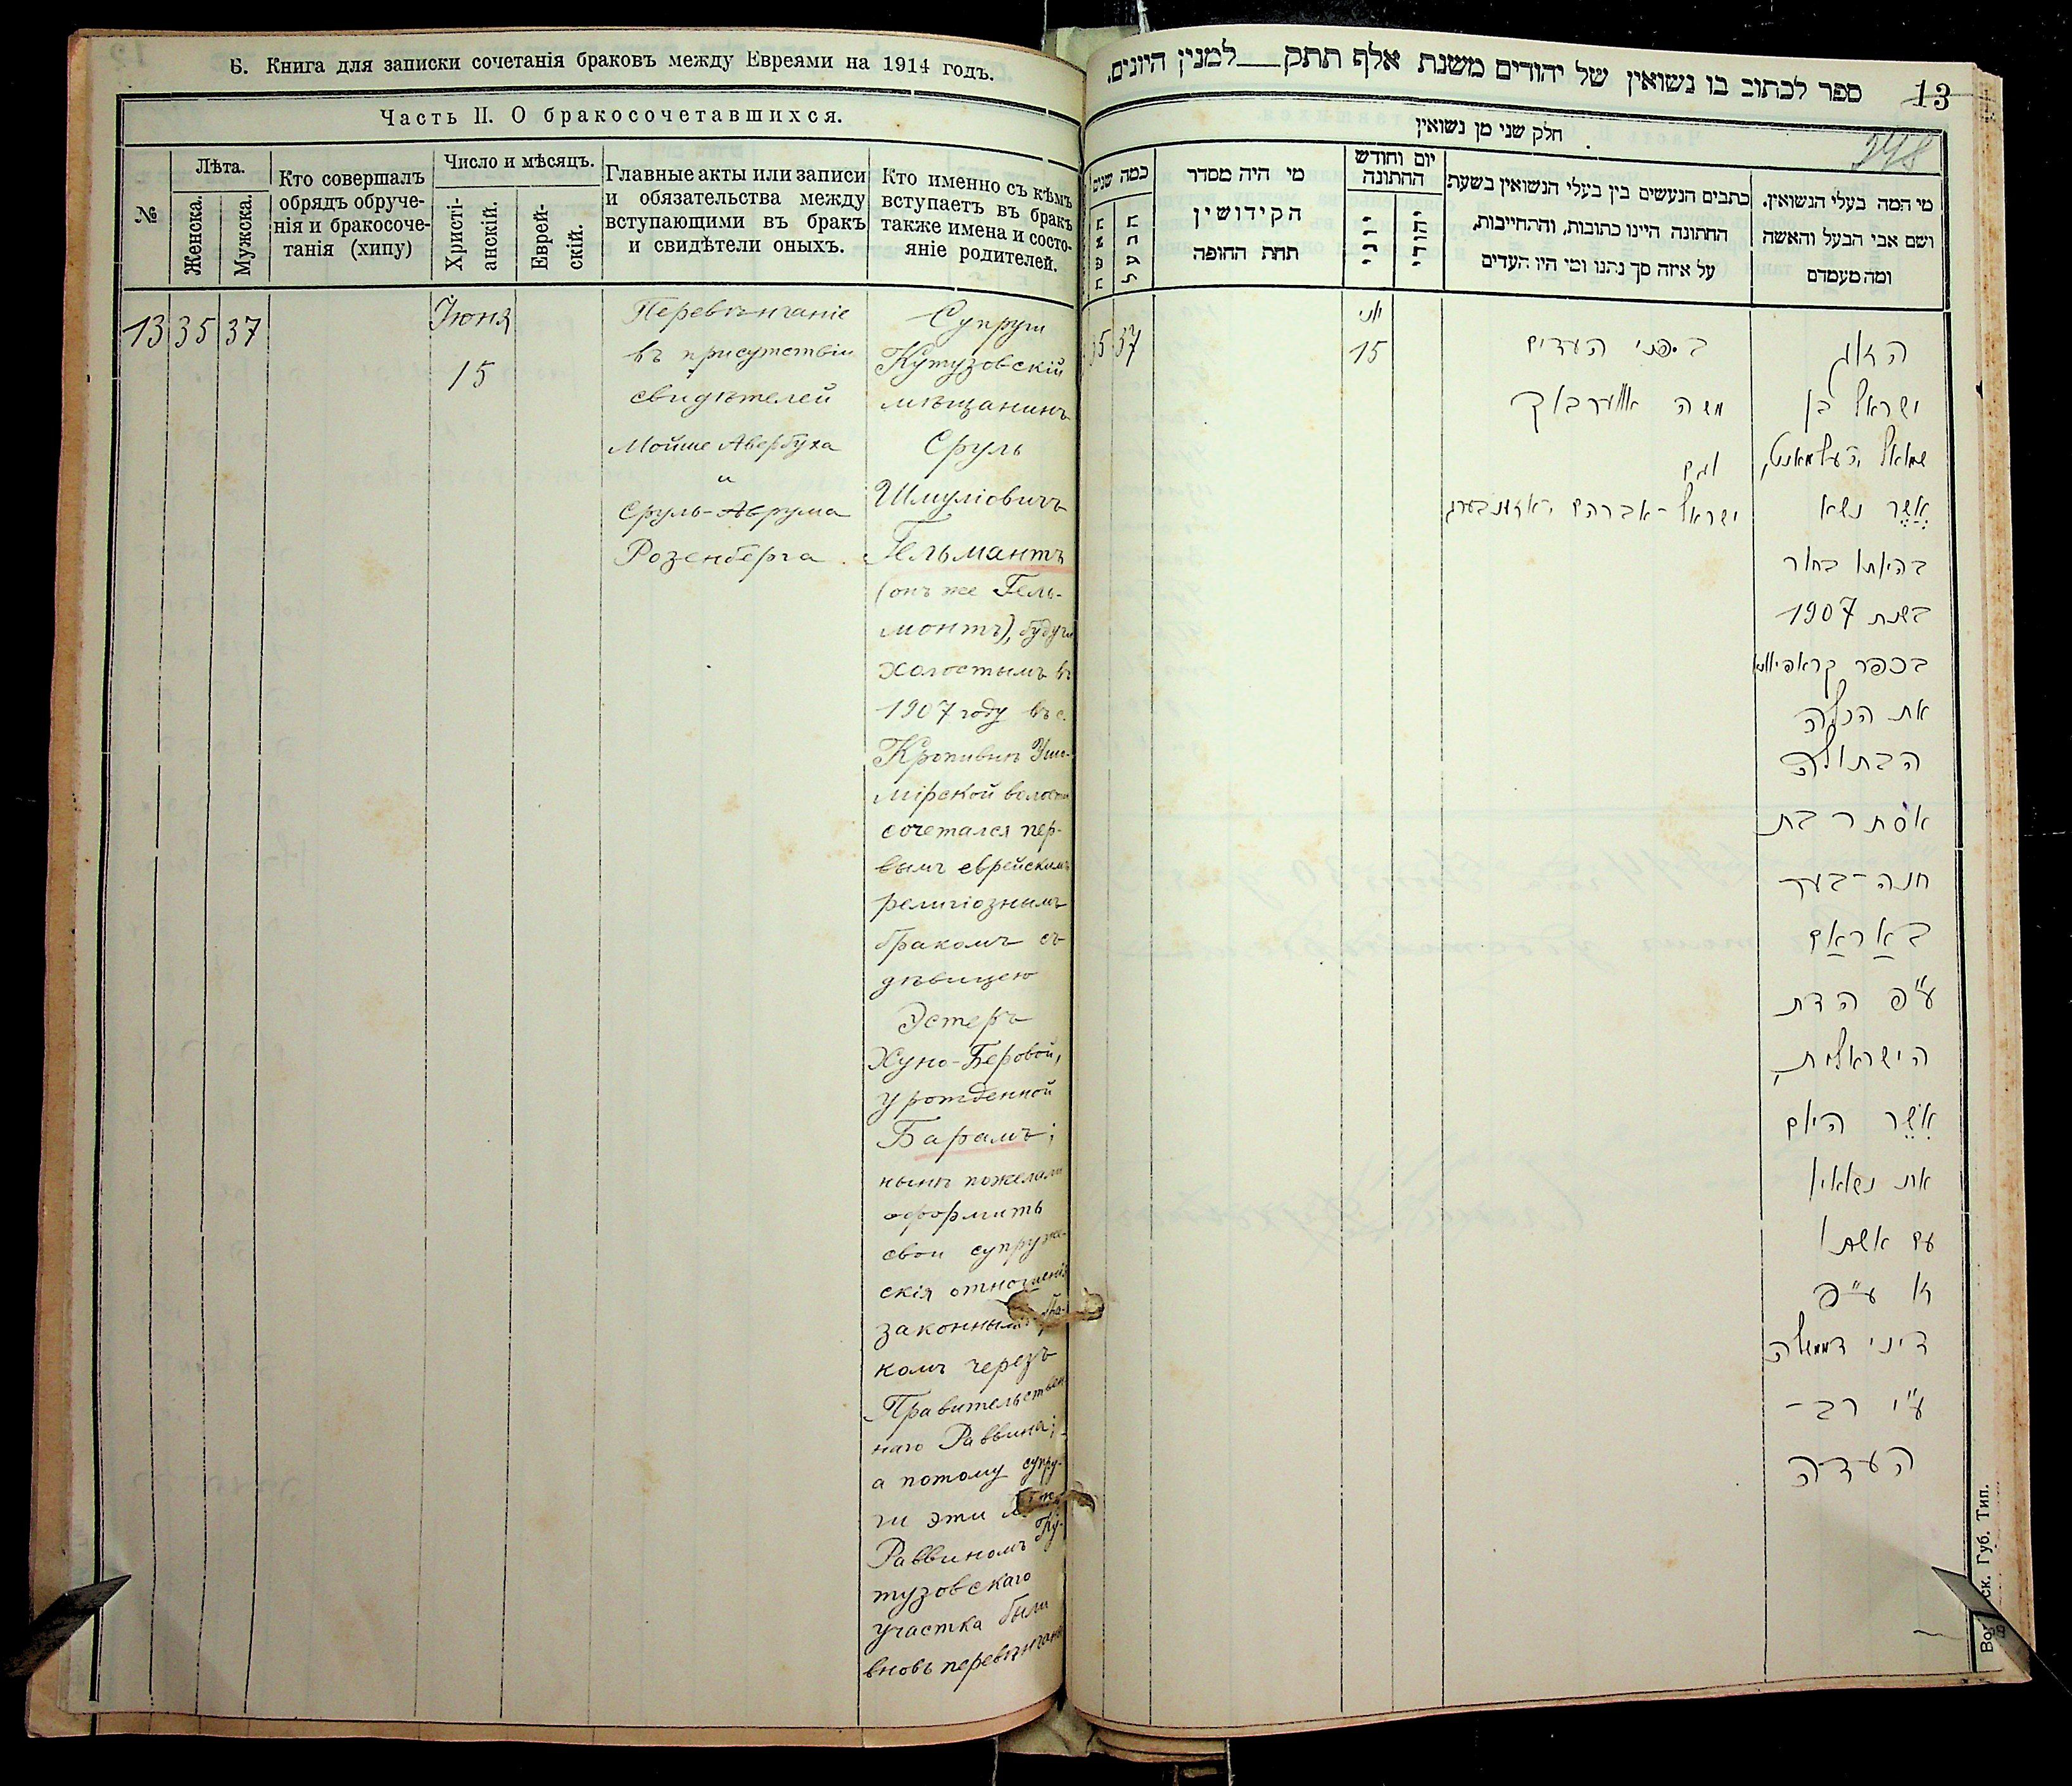 Б. Книга для записки сочетанія браковъ между Евреями на 1914 годъ.
Часть II. О бракосочетавшихся.
№
Лѣта.
Женска.
Мужска.
Кто совершалъ
обрядъ обруче-
нія и бракосоче-
танія (хипу)
Число и мѣсяцъ.
Христі-
анскій.
Еврей-
скій.
Главные акты или записи
и обязательства между
вступающими въ бракъ
и свидѣтели оныхъ.
Кто именно съ кѣмъ
вступаетъ въ бракъ
также имена и состо-
яніе родителей.
13
35
37
Іюня
15
Перевѣнчаніе
въ присутствіи
свидѣтелей
Мойше Авербуха
и
Сруль-Аврума
Розенберга.
Супруги
Кутузовскій
мѣщанинъ
Сруль
Шмуліовичъ
Гельмантъ
(онъ же Гель-
монтъ), будучи
холостымъ въ
1907 году въ с.
Кропивнѣ Ушо-
мірской волости
сочетался пер-
вымъ еврейскимъ
религіознымъ
бракомъ съ
дѣвицею
Эстеръ
Хуно-Беровой,
урожденной
Барамъ;
нынѣ пожелали
оформить
свои супруже-
скія отношенія
законнымъ бра-
комъ черезъ
Правительствен
наго Раввина;
а потому супру-
ги эти
Раввиномъ Ку-
тузовскаго
участка были
вновь перевѣнчаны
ספר לכתוב בו נשואין של יהודים משנת אלף תתק___ למנין היונים.
13
248
חלק שני מן נשואין
כמה שנים
האשה
הבעל
מי היה מסדר
הקידושין
תחת החופה
יום וחודש
החתונה
כתבים הנעשים בין בעלי הנשואין בשעת
החתונה היינו כתובות, והתחייבות,
על איזה סך נתנו ומי היו העדים
מי המה בעלי הנשואין.
ושם אבי הבעל והאשה
ומה מעמדם
35
37
יוני
15
בפני העדים
משה אווערבוך
וגם
ישראל-אברהם ראזענבערג
הזוג
ישראל בן
שמואל העלמאנט,
אֲשֶר נשא
בהיותו בחור
בשנת 1907
בכפר קראפיוונא
את הכלה
הבתולה
אסתר בת
חנה-בער
באַראַם
ע"פ הדת
הישראלית,
אֲשֶר היום
את נשואין
עם אשתו
זו ע"פ
דיני דממשלה
ע"י רב-
העדה
ск. Губ. Тип.